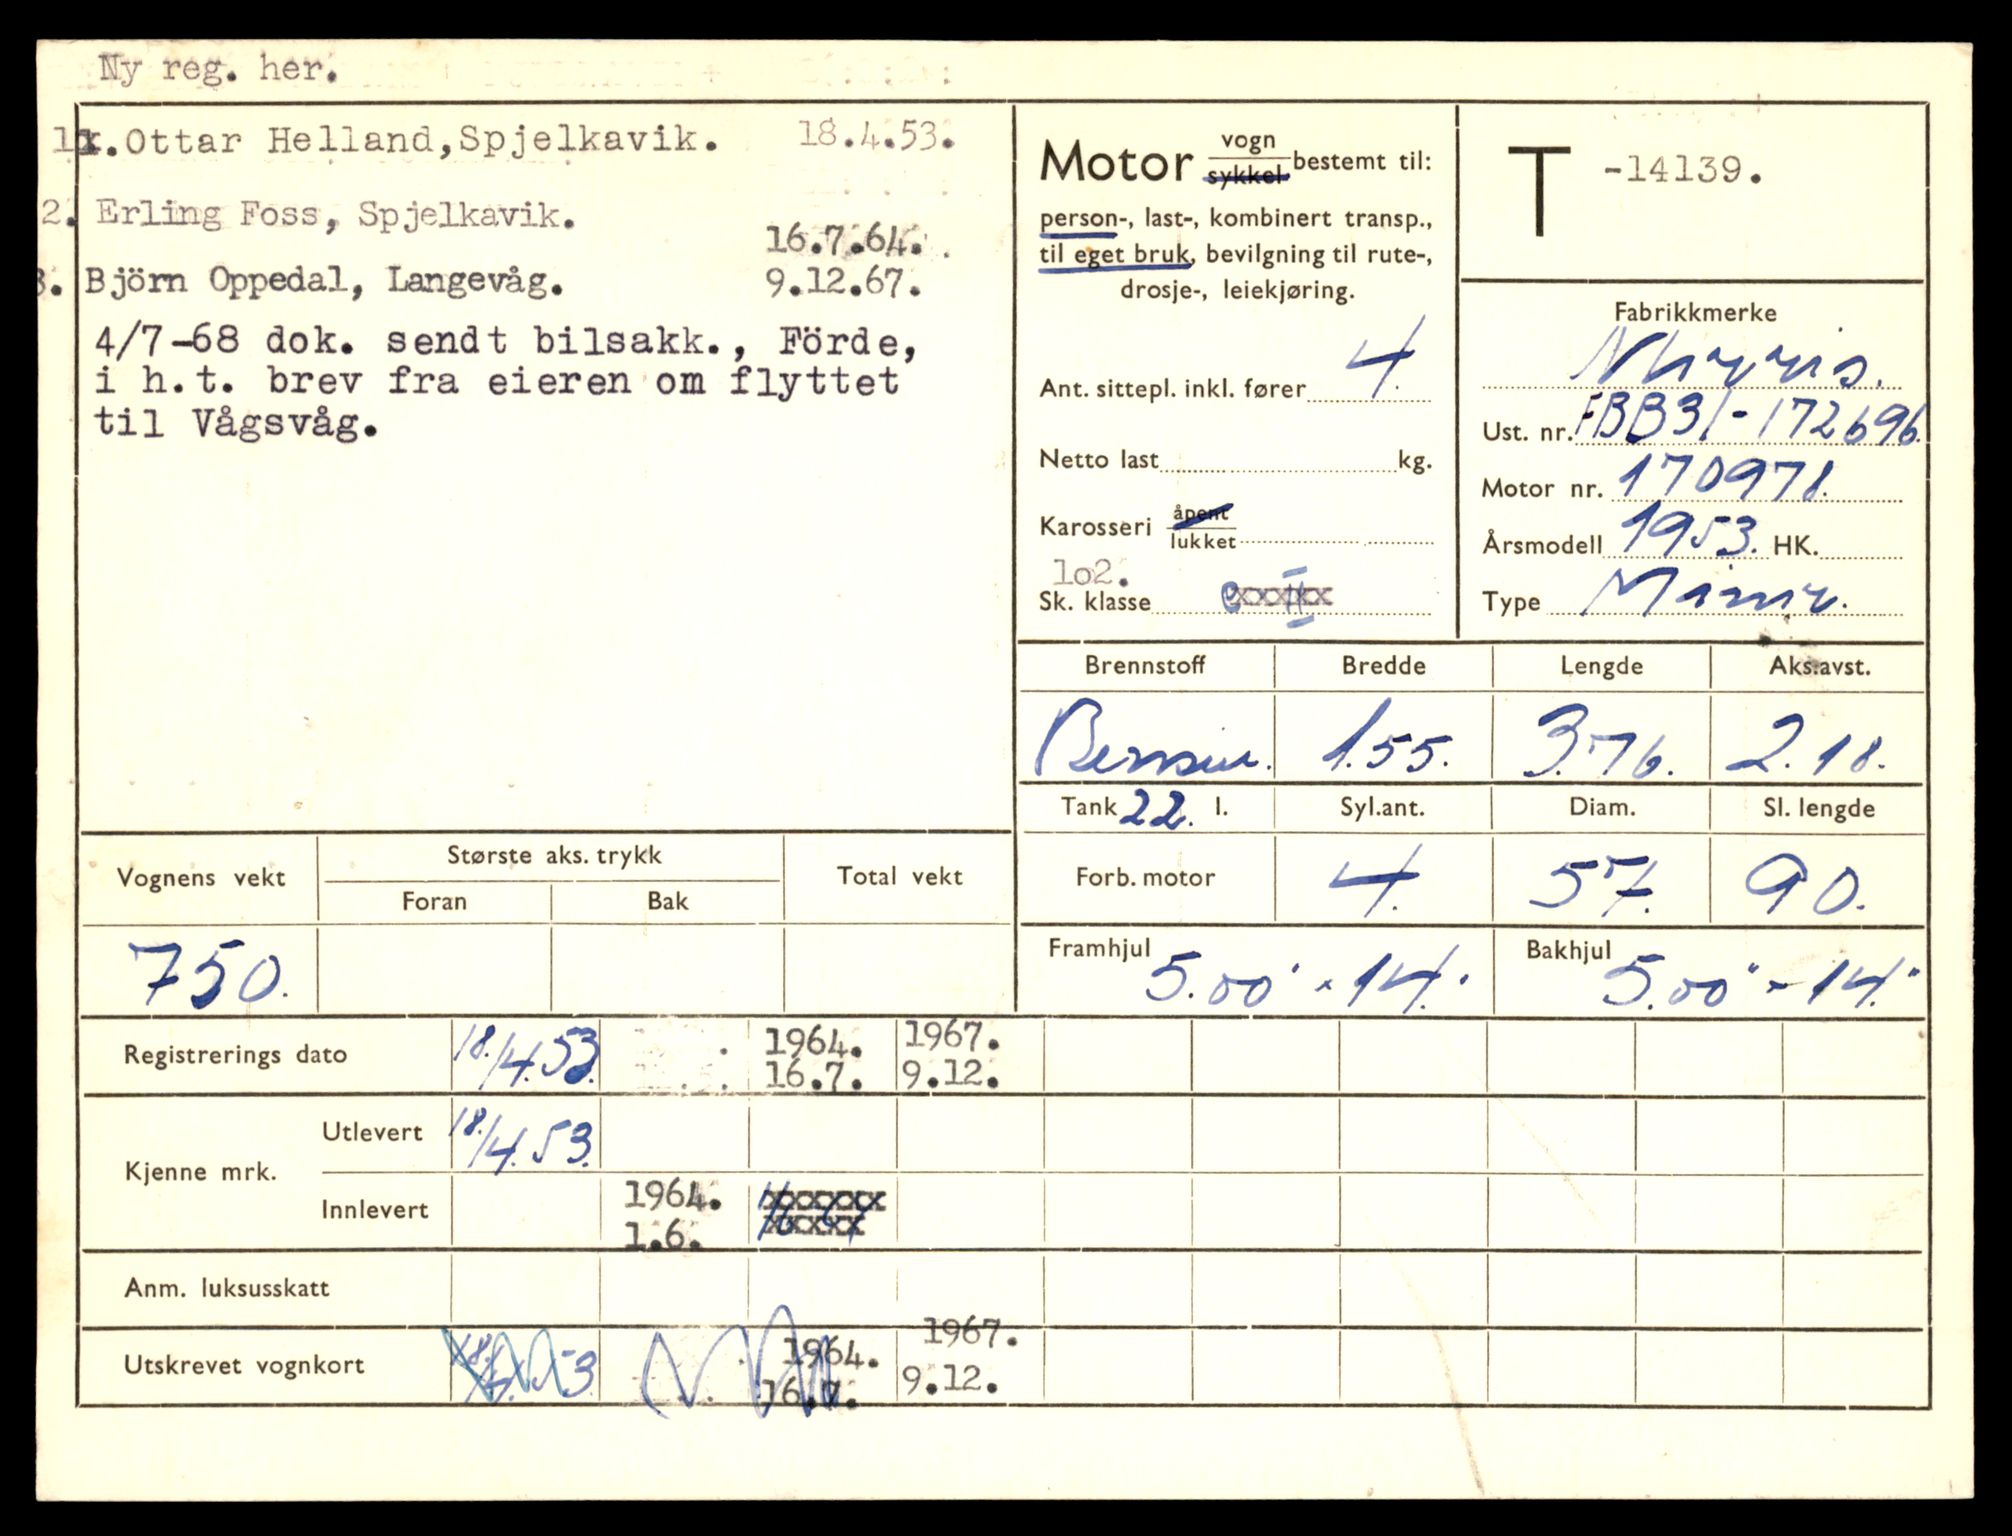 Ny reg. her.
1. Ottar Helland, Spjelkavik. 18.4.53.
2. Erling Foss, Spjelkavik.
16.7.64.
3. Björn Oppedal, Langevåg. 9.12.67.
4/7-68 dok. sendt bilsakk., Förde,
i h.t. brev fra eieren om flyttet
til Vågsvåg.
Motor vogn sykkel bestemt til:
person-, last-, kombinert transp.,
til eget bruk, bevilgning til rute-,
drosje-, leiekjøring.
Ant. sittepl. inkl. fører 4.
Netto last kg.
Karosseri åpent lukket
lo2.
Sk. klasse
T -14139.
Fabrikkmerke
Morris.
Ust. nr. FBB31-172696.
Motor nr. 170978.
Årsmodell 1953. HK.
Type Minor.
Brennstoff Bredde Lengde Aks.avst.
Bensin. 1.55. 3.76. 2.18.
Tank 22. l. Syl.ant. Diam. Sl. lengde
Forb. motor 4. 57. 90.
Framhjul 5.00" × 14." Bakhjul 5.00" × 14."
Vognens vekt Største aks. trykk Total vekt
Foran Bak
750.
Registrerings dato 18./4.53. 1964. 1967.
16.7. 9.12.
Kjenne mrk. Utlevert 18./4.53.
Innlevert 1964.
1.6.
Anm. luksusskatt
Utskrevet vognkort 18./4.53. 1964. 1967.
16.7. 9.12.